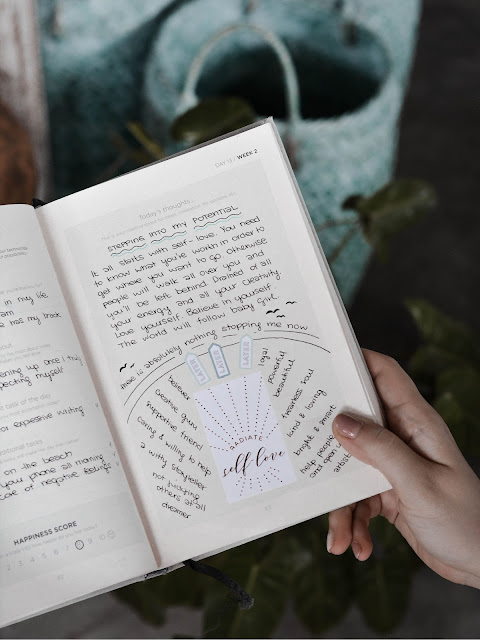 in my life
me has my track
opening up once I truly
pecting myself
task of the day
or expressive writing
motional tasks
on the beach
your phone all morning
care of negative feelings
HAPPINESS SCORE
1 2 3 4 5 6 7 8 9 10
DAY 13 / WEEK 2
Today's thoughts
STEPPING INTO MY POTENTIAL
It all starts with self-love. You need
to know what you're worth in order to
get where you want to go otherwise
people will walk all over you and
you'll be left behind. Drained of all
your energy and all your creativity.
Love yourself. Believe in yourself.
The world will follow baby girl.
there is absolutely nothing stopping me now
LATER
LATE
LATER
believer
creative guru
supportive friend
caring & willing to help
witty storyteller
not judging
others at all
dreamer
RADIATE
self love
loyal
powerful
beautiful
fearless soul
kind & loving
bright & smart
help people
and open